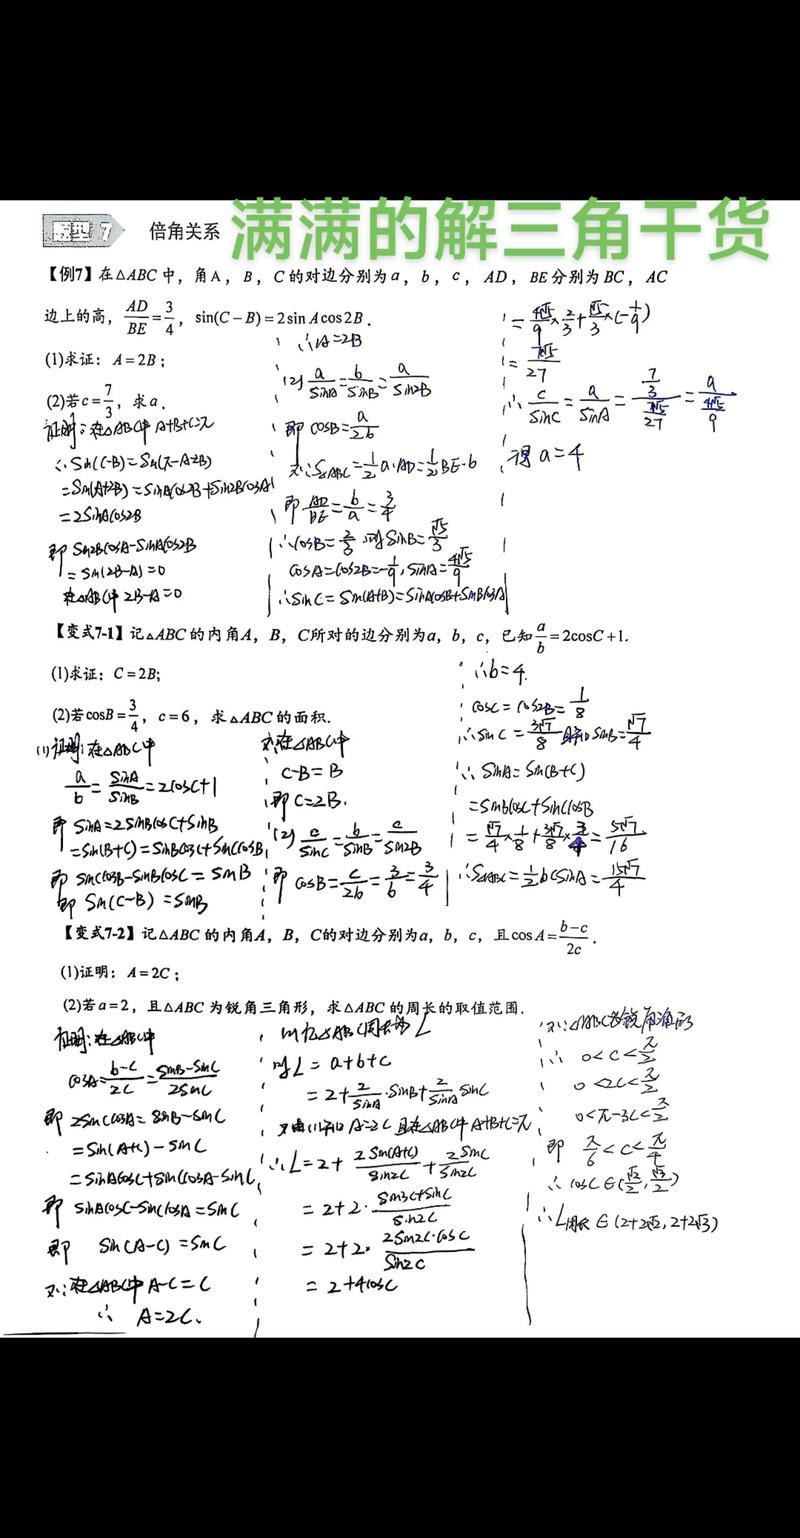 满满的解三角干货
题型 7 倍角关系
【例7】在△ABC 中，角A，B，C 的对边分别为a，b，c，AD，BE分别为BC，AC
边上的高，AD/BE=3/4，sin(C−B)=2sin A cos 2B．
(1)求证：A=2B；
(2)若c=7/3，求a．
证明：在△ABC中 A+B+C=π
∴Sin(C-B)=Sin(π-A-2B)
=Sin(A+2B)=SinACos2B+Sin2BCosA
=2SinACos2B
即 Sin2BCosA-SinACos2B
=Sin(2B-A)=0
在△ABC中 2B-A=0
∴A=2B
(2) a/SinA=b/SinB=a/Sin2B
即 COSB=a/2b
又∵S△ABC=1/2 a·AD=1/2 BE·b
即 AD/BE=b/a=3/4
∴COSB=2/3 则SinB=√5/3
COSA=COS2B=-1/9，SinA=4√5/9
∴SinC=Sin(A+B)=SinACosB+SinBCosA
=4√5/9×2/3+√5/3×(-1/9)
=7√5/27
∴ c/SinC=a/SinA=7/3/7√5/27=a/4√5/9
得 a=4
【变式7-1】记△ABC的内角A，B，C所对的边分别为a，b，c，已知a/b=2cosC+1.
(1)求证：C=2B;
(2)若cosB=3/4，c=6，求△ABC的面积.
(1)证明:在△ABC中
a/b=SinA/SinB=2COSC+1
即 SinA=2SinBCosC+SinB
=Sin(B+C)=SinBCosC+SinCCosB
即 SinCCosB-SinBCosC=SinB
即 Sin(C-B)=SinB
又∵在△ABC中
C-B=B
即C=2B.
(2) c/SinC=b/SinB=c/Sin2B
即 COSB=c/2b=3/b=3/4
∴b=4.
COSC=COS2B=1/8
∴SinC=3√7/8 SinB=√7/4
∴SinA=Sin(B+C)
=SinBCosC+SinCCosB
=√7/4×1/8+3√7/8×3/4=5√7/16
∴S△ABC=1/2bcSinA=15√7/4
【变式7-2】记△ABC 的内角A，B，C的对边分别为a，b，c，且cosA=b−c/2c．
(1)证明：A=2C；
(2)若a=2，且△ABC 为锐角三角形，求△ABC 的周长的取值范围．
证明:在△ABC中
COSA=b-c/2c=SinB-SinC/2SinC
即 2SinCCosA=SinB-SinC
=Sin(A+C)-SinC
=SinACosC+SinCCosA-SinC
即 SinACosC-SinCCosA=SinC
即 Sin(A-C)=SinC
又∵在△ABC中 A-C=C
∴ A=2C.
△ABC周长为L
则L=a+b+c
=2+2/SinA·SinB+2/SinA SinC
又由(1)知A=2C 且在△ABC中 A+B+C=π
∴L=2+2Sin(A+C)/Sin2C+2SinC/Sin2C
=2+2·Sin3C+SinC/Sin2C
=2+2×2Sin2C·COSC/Sin2C
=2+4COSC
又∵△ABC为锐角三角形
∴ 0<C<π/2
0<2C<π/2
0<π-3C<π/2
即 π/6<C<π/4
∴ COSC∈(√2/2,√3/2)
∴L周长∈(2+2√2,2+2√3)